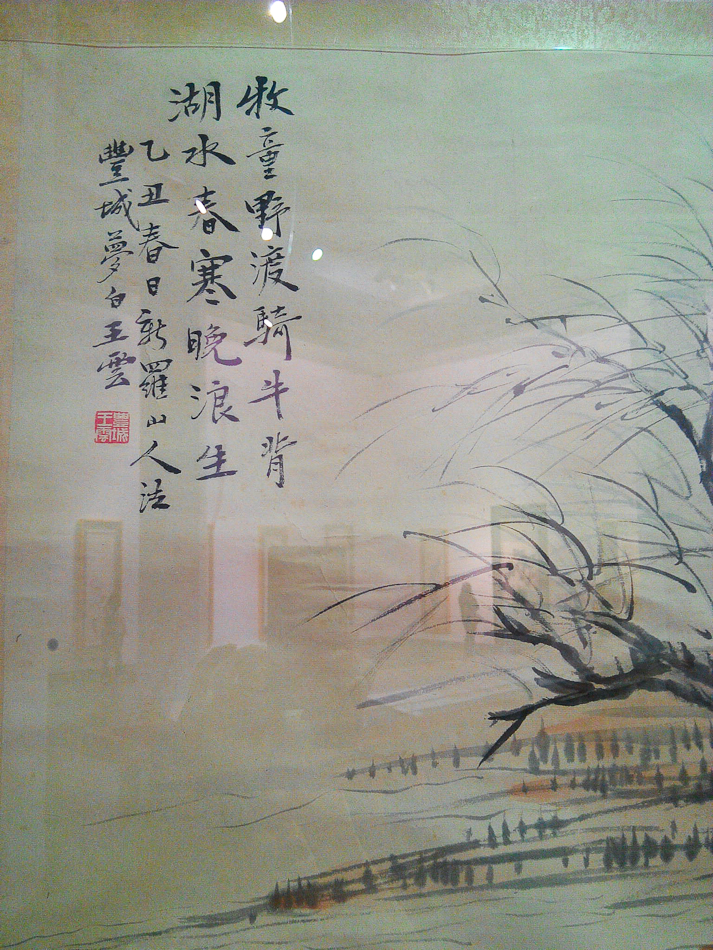 牧童野渡騎牛背
湖水春寒晚浪生
乙丑春日新羅山人法
豐城夢白王雲
豐城王雲